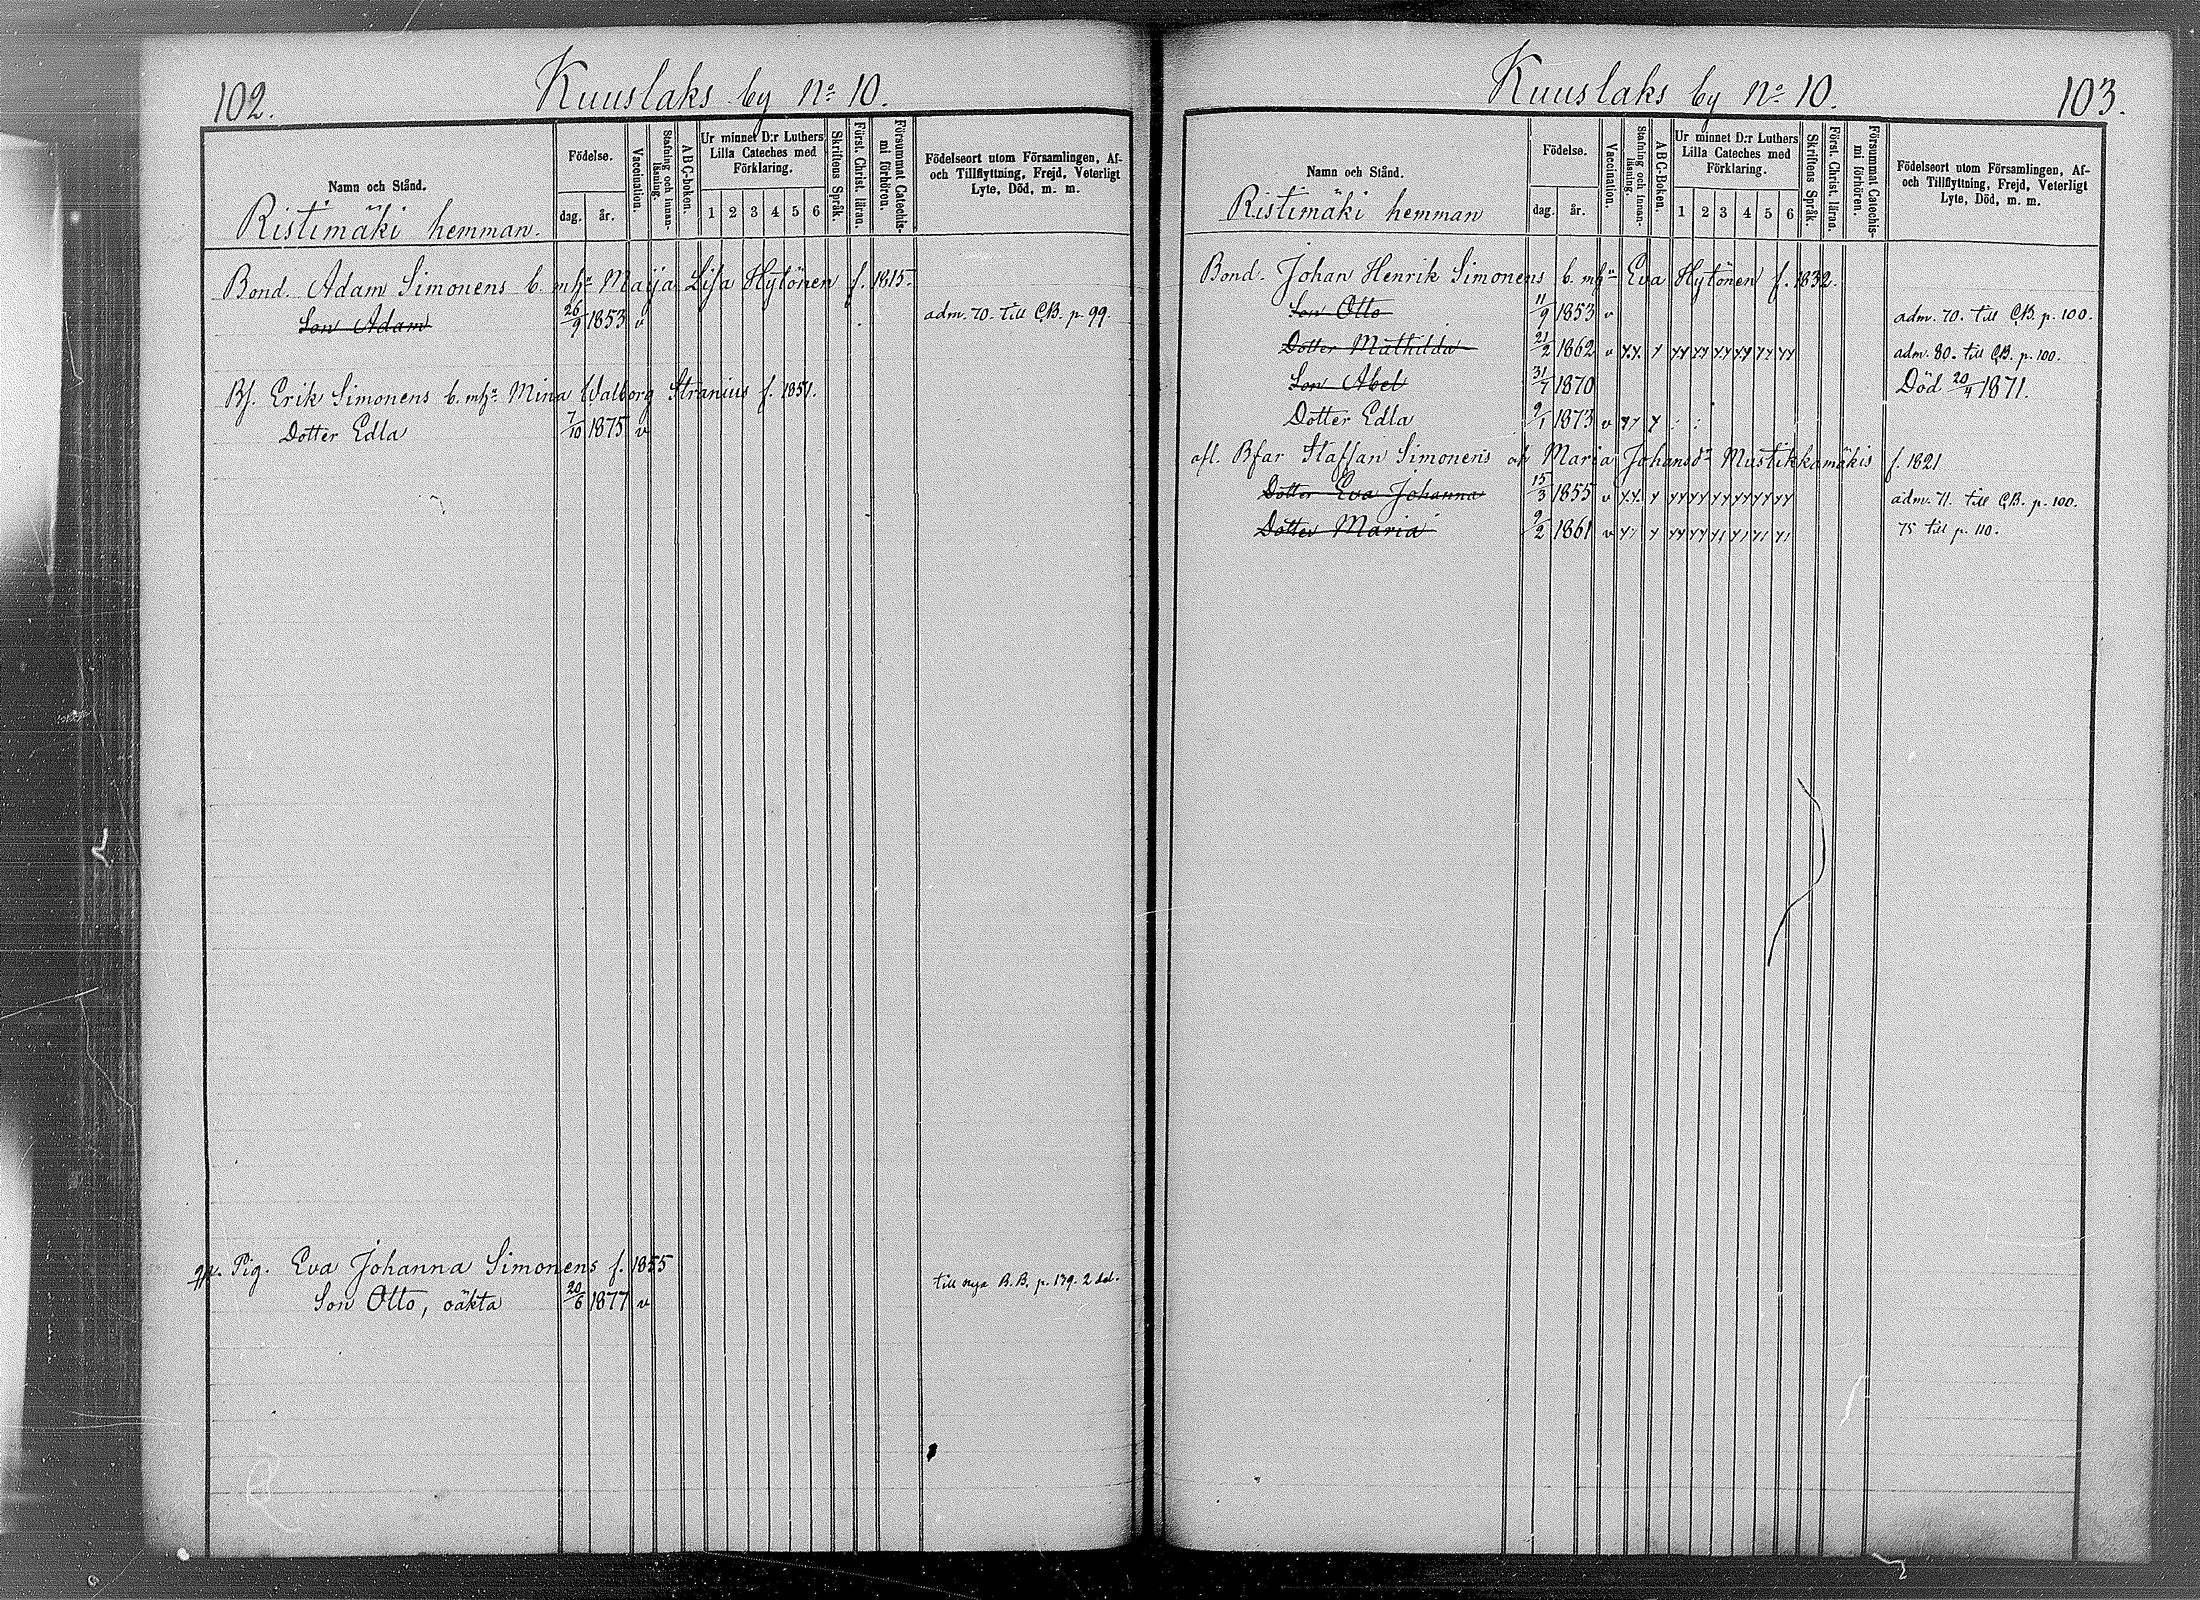 102.
Kuuslaks by No 10.
Namn och Stånd.
Födelse.
dag. år.
Vaccination.
Stafning och innanläsning.
ABC-boken.
Ur minnet D:r Luthers Lilla Cateches med Förklaring.
1 2 3 4 5 6
Skriftens Språk.
Först. Christ. läran.
Försummat Catechismi förhören.
Födelseort utom Församlingen, Af- och Tillflyttning, Frejd, Veterligt Lyte, Död, m. m.
Ristimäki hemman.
Bond. Adam Simonens b. mhu Maija Lisa Hytönen f. 1815.
Son Adam 26/9 1853 v adm. 70. till C.B. p. 99.
Bf. Erik Simonens b. mhu Mina Walborg Stranius f. 1851.
Dotter Edla 7/10 1875 v
Pig. Eva Johanna Simonens f. 1855
Son Otto, oäkta 20/6 1877 v till nya B.B. p. 139. 2 del.
103.
Kuuslaks by No 10.
Namn och Stånd.
Födelse.
dag. år.
Vaccination.
Stafning och innanläsning.
ABC-Boken.
Ur minnet D:r Luthers Lilla Cateches med Förklaring.
1 2 3 4 5 6
Skriftens Språk.
Först. Christ. läran.
Försummat Catechismi förhören.
Födelseort utom Församlingen, Af- och Tillflyttning, Frejd, Veterligt Lyte, Död, m. m.
Ristimäki hemman
Bond. Johan Henrik Simonens b. mhu Eva Hytönen f. 1832.
Son Otto 11/9 1853 v adm. 70. till C.B. p. 100.
Dotter Mathilda 21/2 1862 v adm. 80. till C.B. p. 100.
Son Abel 31/7 1870 Död 20/4 1871.
Dotter Edla 9/1 1873 v
afl. Bfar Staffan Simonens och Maria Johansdr Mustikkamäkis f. 1821
Dotter Eva Johanna 15/3 1855 v adm. 71. till C.B. p. 100.
Dotter Maria 9/2 1861 v 75 till p. 110.